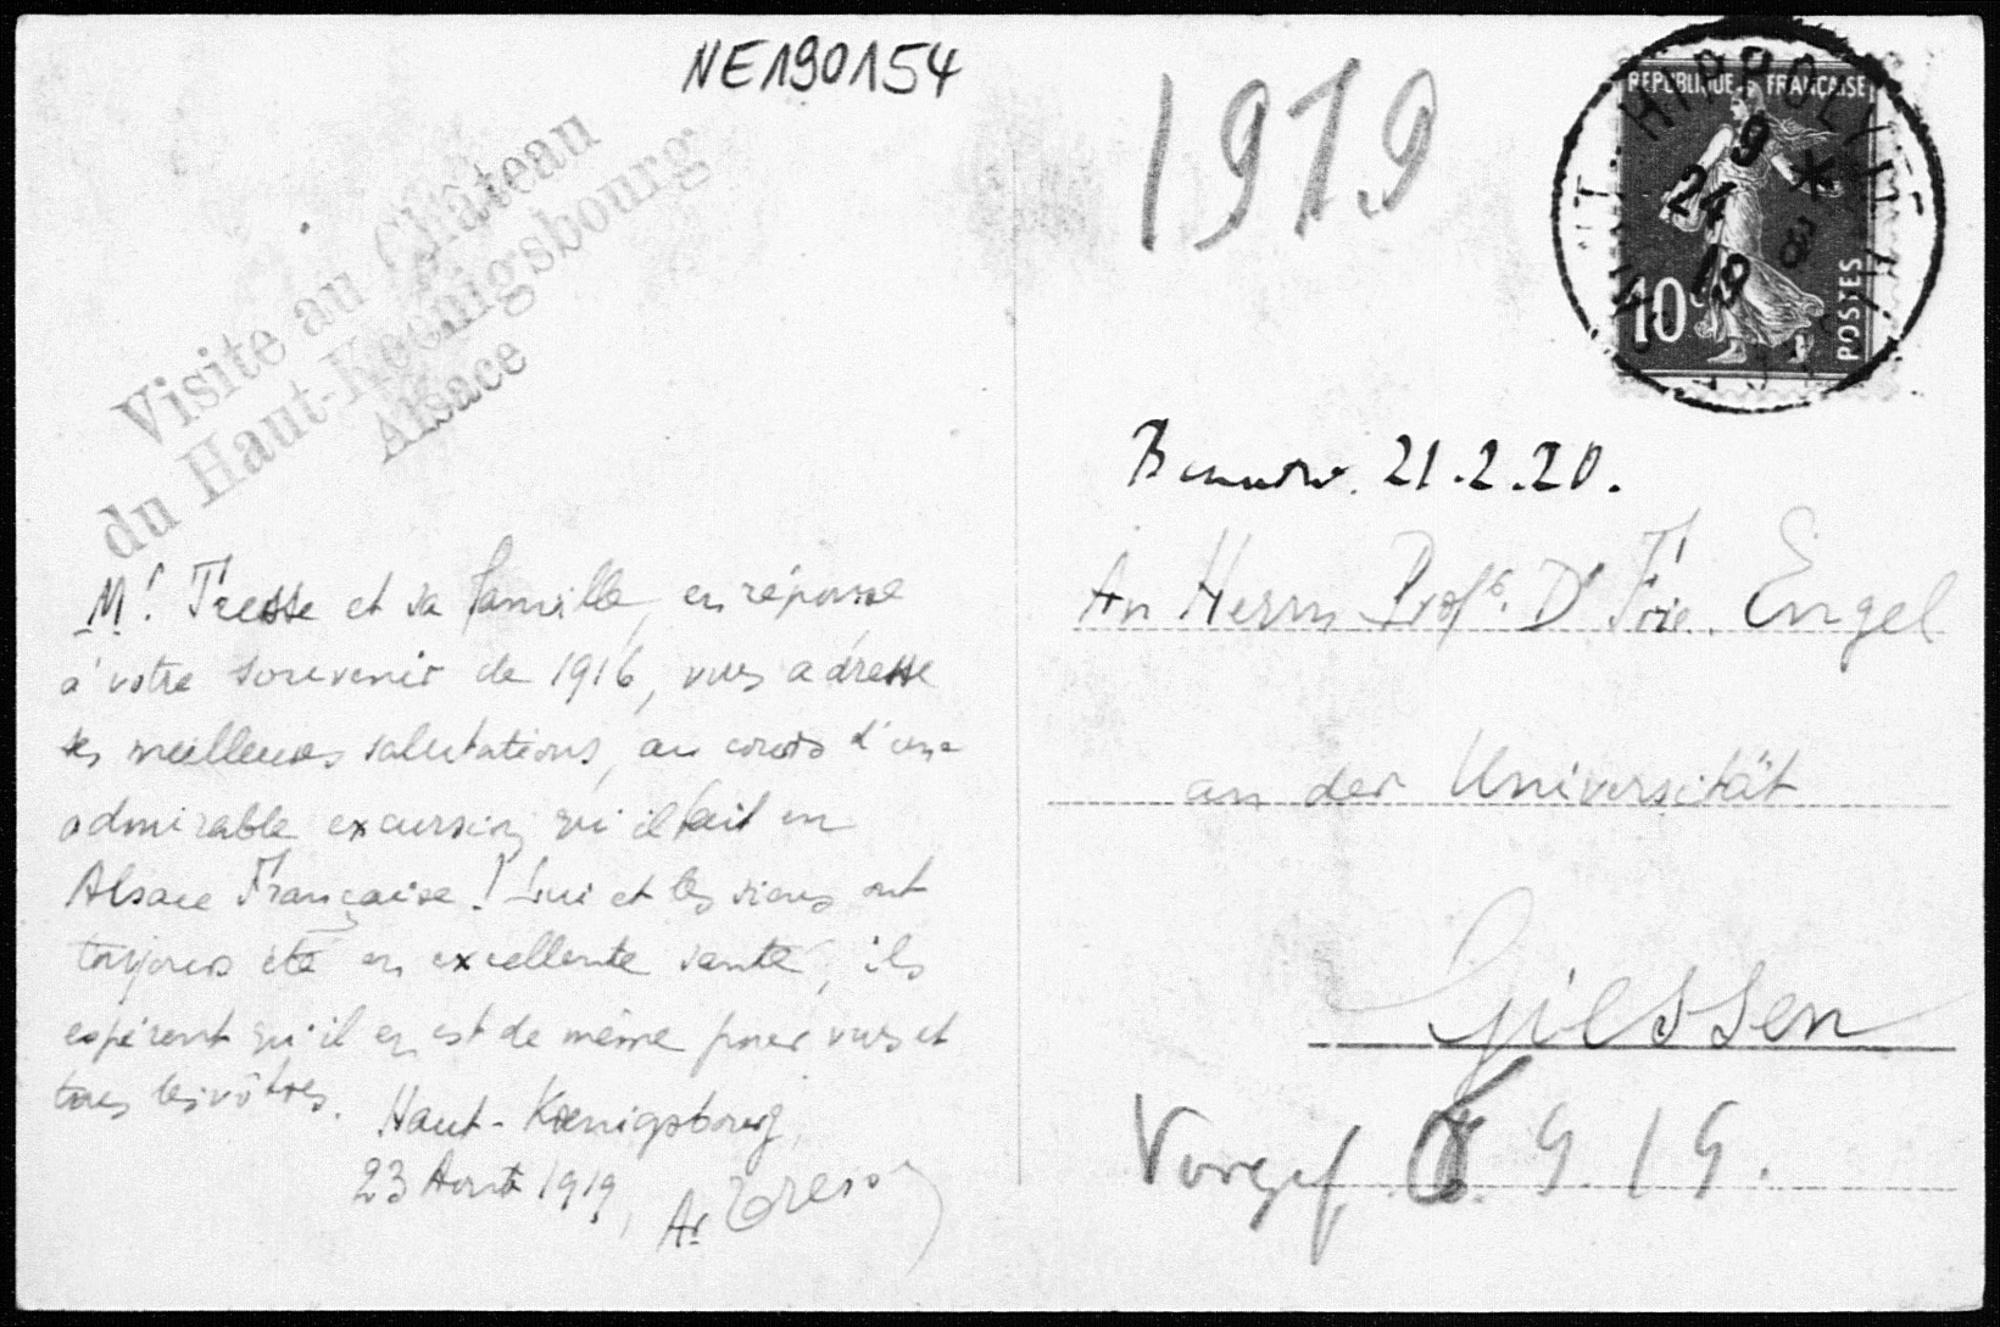 NE190154
1919
Visite au Château
du Haut-Kœnigsbourg
Alsace
REPUBLIQUE FRANÇAISE
10c
POSTES
HIPPOLITE
9
24 8
19
21.2.20.
Mr. Tresse et sa famille, en réponse
à votre souvenir de 1916, vous adresse
ses meilleures salutations, au cours d'une
admirable excursion qu'il fait en
Alsace Française! Lui et les siens ont
toujours été en excellente santé, ils
espèrent qu'il en est de même pour vous et
tous les vôtres.
Haut-Kœnigsbourg,
23 Août 1919,
An Herrn Prof. Dr Frie. Engel
an der Universität
Giessen
9 19.